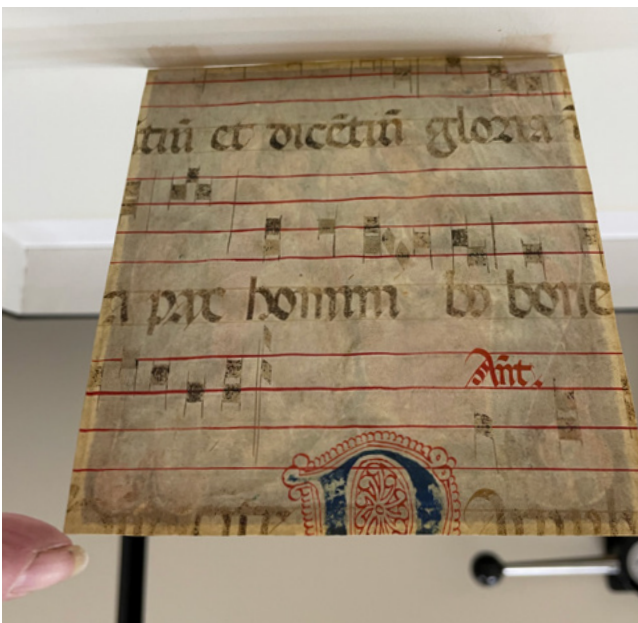 tiū et dicētiū gloria i
a pax homini bo bone
Ant.